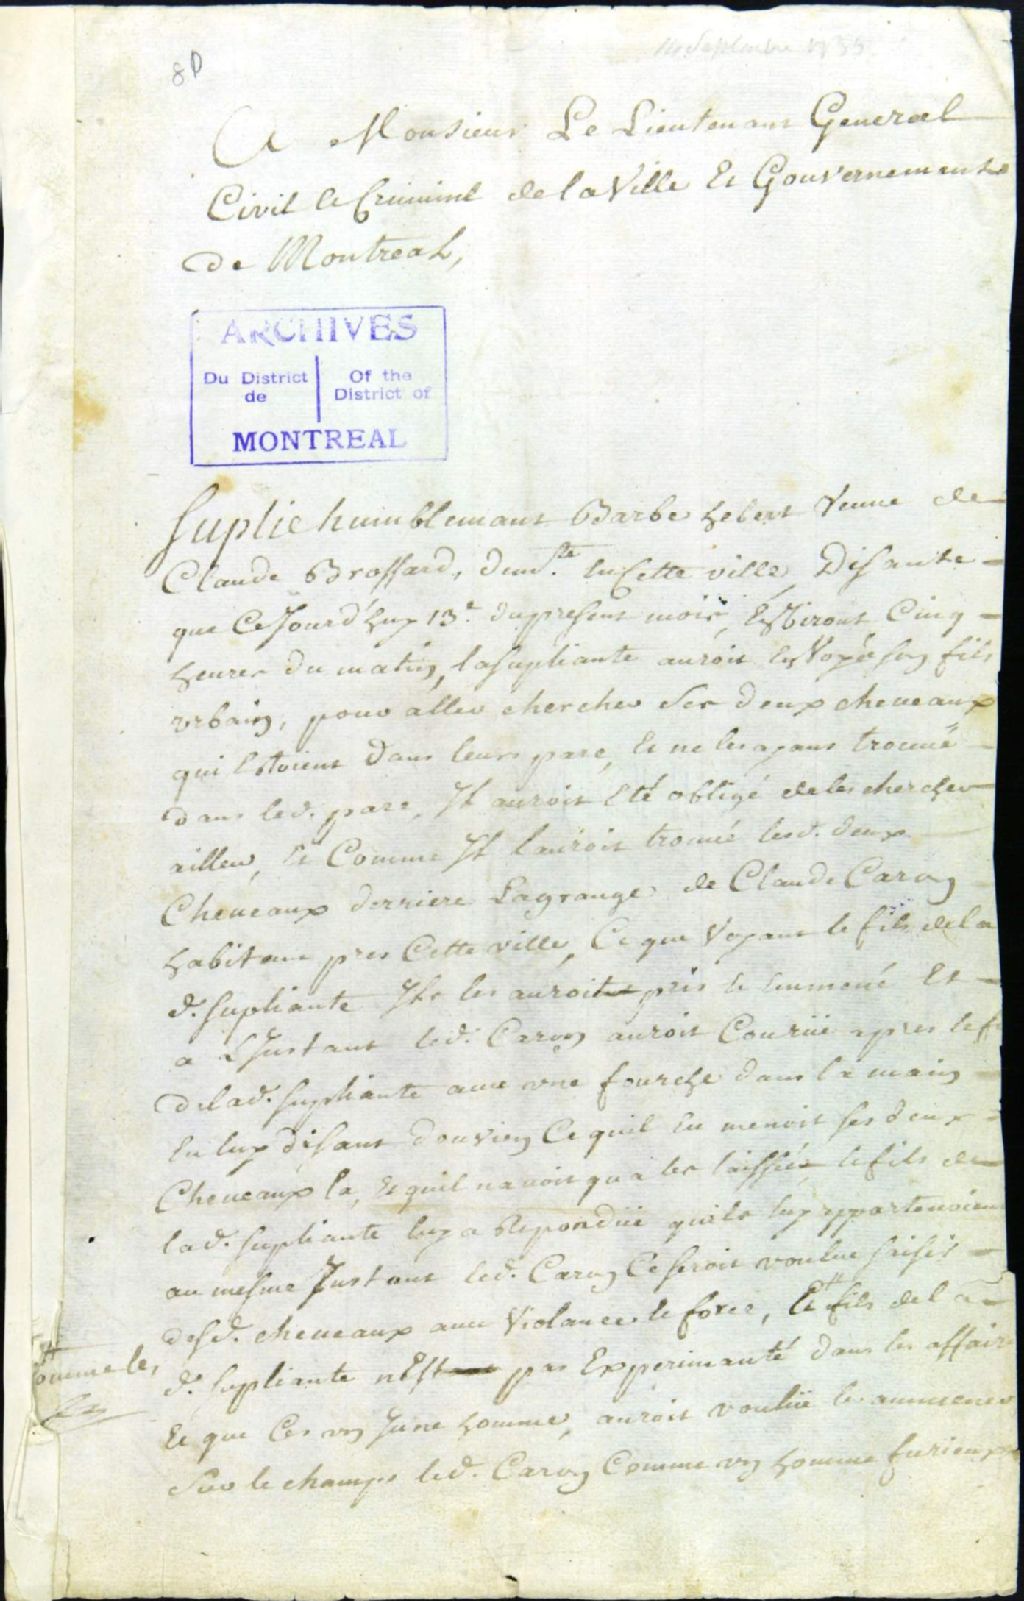 8D
10 Septembre 1735
A Monsieur Le Lieutenant General
Civil Et Criminel de la Ville Et Gouvernement
de Montreal,
ARCHIVES
Du District de
Of the District of
MONTREAL
Suplie humblemant Barbe hebert Veuve de
Claude Brossard, demte. En Cette ville, Disante
que Ce Jourd'huy 13e. du present mois, Environt Cinq
heures du matin, la supliante auroit EnVoyé son fils
urbain, pour aller chercher Ses deux cheveaux
qui Etoient dans leurs parc, Et ne les ayans trouvé
dans led. parc, Il auroit Eté obligé de les chercher
ailleur, Et Comme Il lauroit trouvé lesd. deux
Cheveaux derriere Lagrange de Claude Caron
habitant pres Cette ville, Ce que Voyant le fils de la
d. supliante Ils les auroit pris Et Emmené Et
a LJnstant led. Caron auroit Couruë apres le fi
de lad. supliante avec une fourche dans la main
En luy disant d'ou vien Ce quil En menoit ses deux
Cheveaux la, Et quil navoit qu'a les laisser, le fils de
lad. supliante luy a Reponduë quils luy appartenoient
au mesme Jnstant led. Caron Ce seroit voulue saisir
desd. cheveaux avec Violance Et force, Et fils de la
d. supliante nEst pas Experimanté dans les affaire
Et que Ces un June homme, auroit vouluë les ammener
Sur le champs led. Caron Comme un homme furieux
Comme les